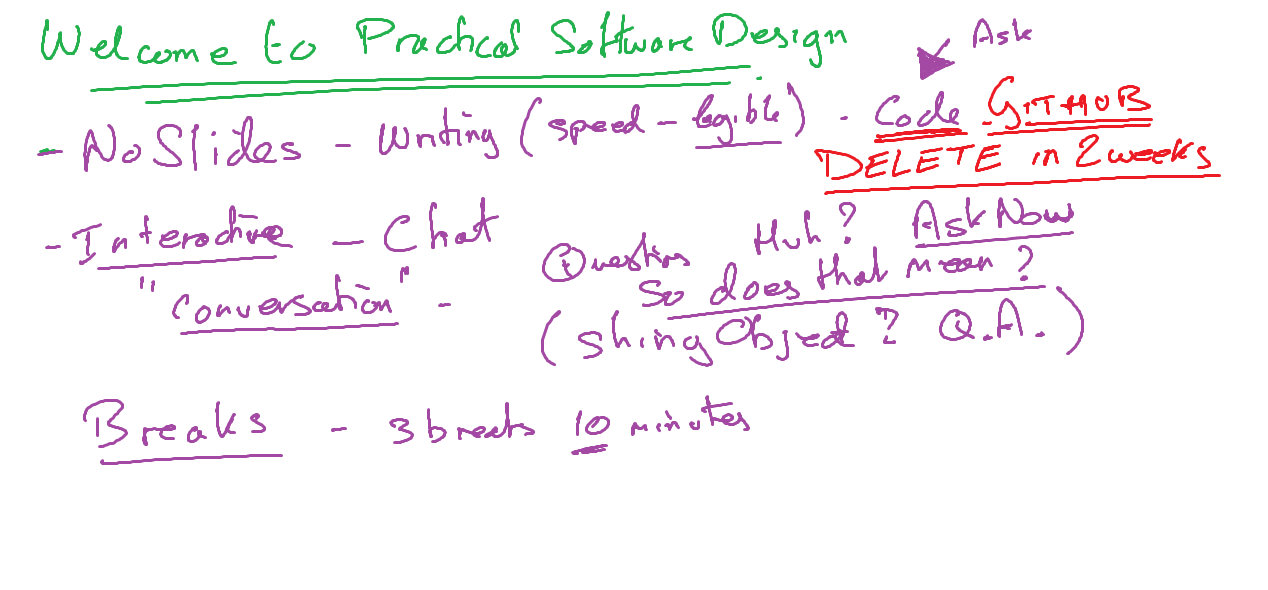 Welcome to Practical Software Design
Ask
- No Slides - Writing (speed - legible) - Code GITHUB
DELETE in 2 weeks
- Interactive - Chat
Questions Huh? Ask Now
"conversation" - So does that mean?
(shiny Object? Q.A.)
Breaks - 3 breaks 10 minutes